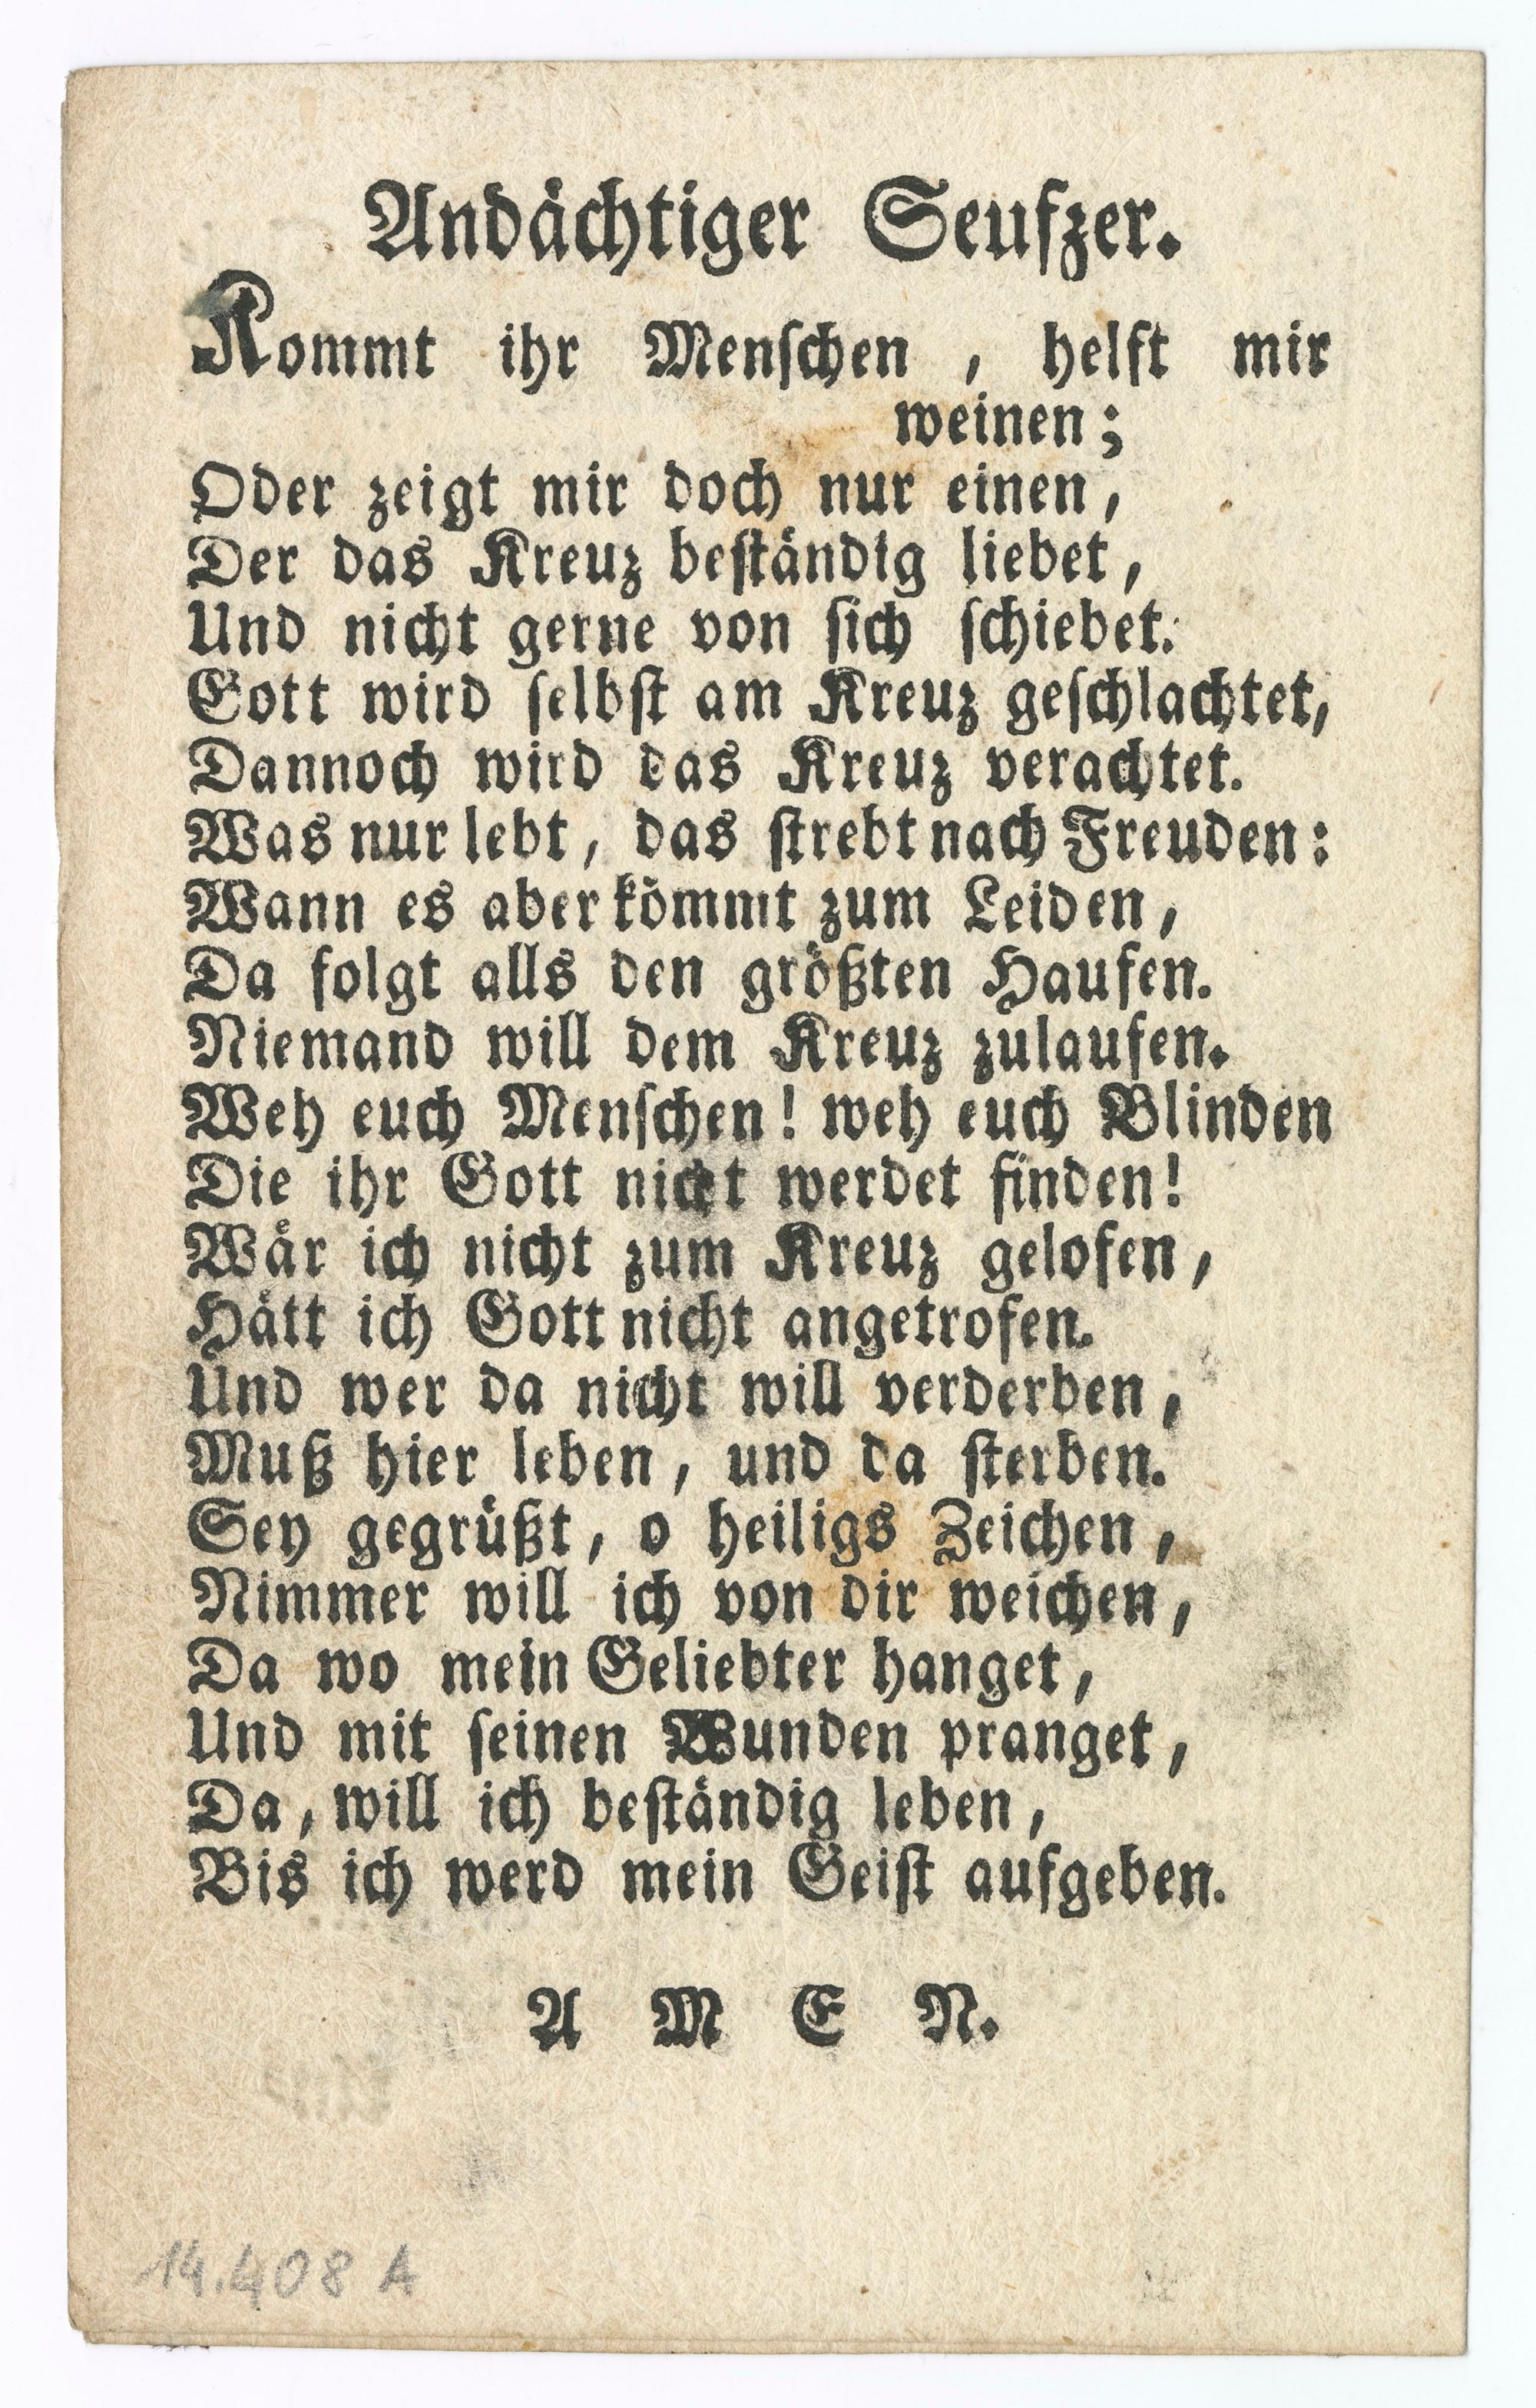 Andächtiger Seufzer.
Kommt ihr Menschen , helft mir
weinen;
Oder zeigt mir doch nur einen,
Der das Kreuz beständig liebet,
Und nicht gerne von sich schiebet.
Gott wird selbst am Kreuz geschlachtet,
Dannoch wird das Kreuz verachtet.
Was nur lebt, das strebt nach Freuden:
Wann es aber kömmt zum Leiden,
Da folgt alls den größten Haufen.
Niemand will dem Kreuz zulaufen.
Weh euch Menschen! weh euch Blinden
Die ihr Gott nicht werdet finden!
Wär ich nicht zum Kreuz gelofen,
Hätt ich Gott nicht angetrofen.
Und wer da nicht will verderben,
Muß hier leben, und da sterben.
Sey gegrüßt, o heiligs Zeichen,
Nimmer will ich von dir weichen,
Da wo mein Geliebter hanget,
Und mit seinen Wunden pranget,
Da, will ich beständig leben,
Bis ich werd mein Geist aufgeben.
A M E N.
14.408 A